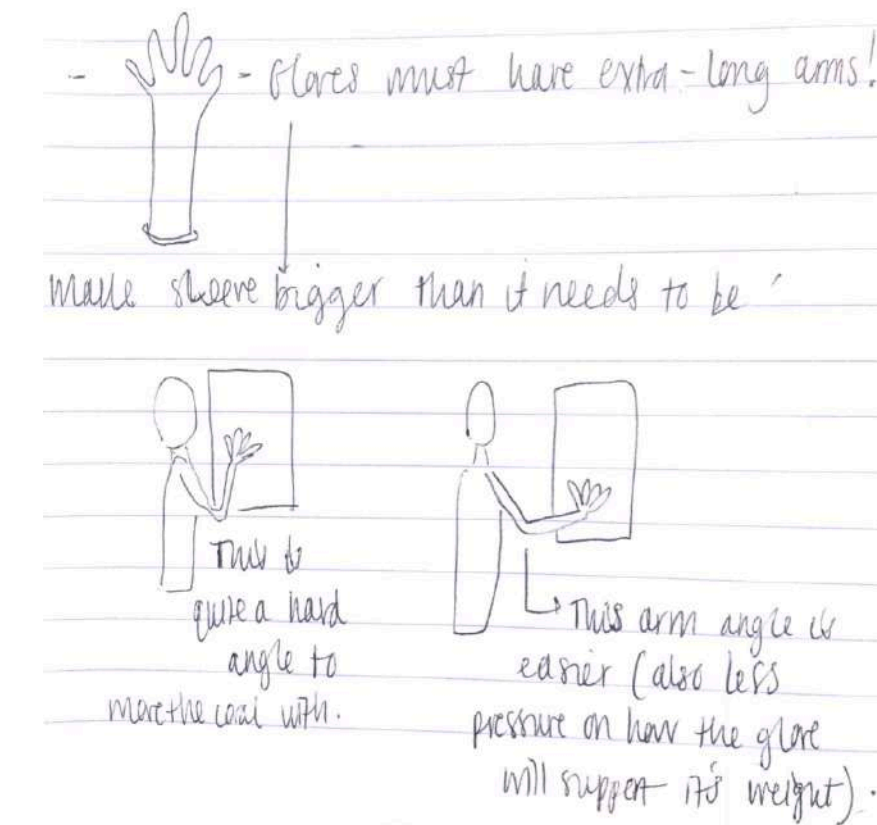 - - Gloves must have extra-long arms!
make sleeve bigger than it needs to be
This is
quite a hard
angle to
move the coal with.
This arm angle is
easier (also less
pressure on how the glove
will support it's weight).